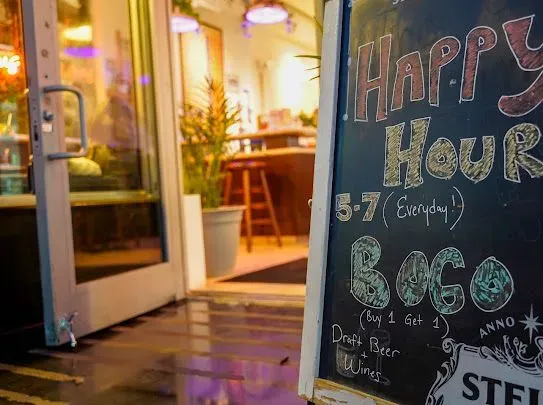 HAPPY
HOUR
5-7 (Everyday!)
BOGO
(Buy 1 Get 1)
Draft Beer
+
Wines
ANNO